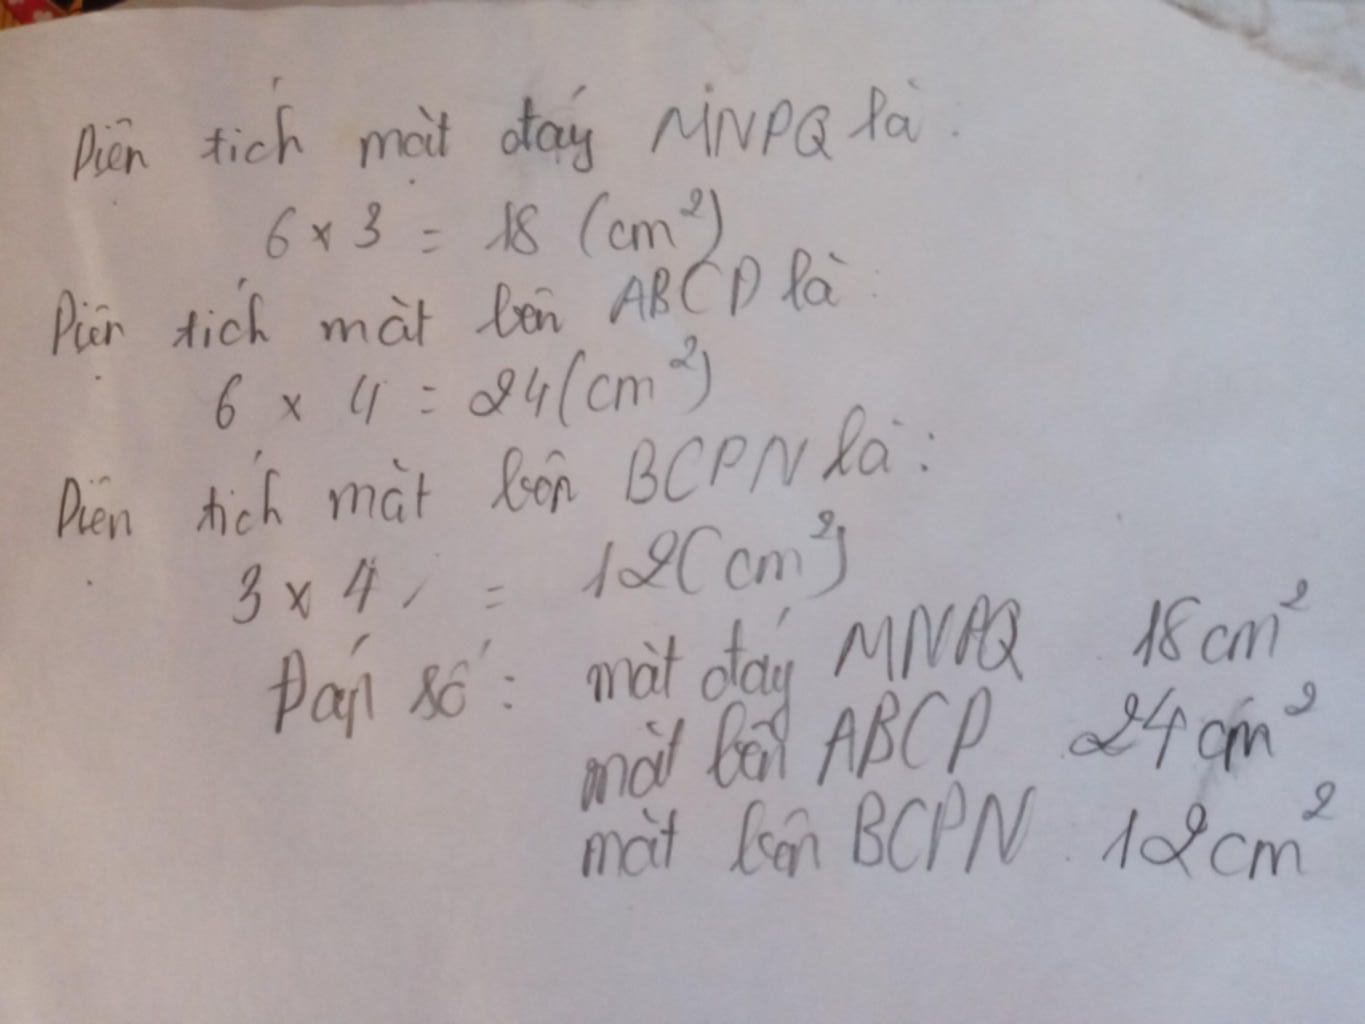 Diện tích mặt đáy MNPQ là:
6 x 3 = 18 (cm²)
Diện tích mặt bên ABCD là:
6 x 4 = 24 (cm²)
Diện tích mặt bên BCPN là:
3 x 4 = 12 (cm²)
Đáp số: mặt đáy MNPQ 18cm²
mặt bên ABCD 24cm²
mặt bên BCPN 12cm²